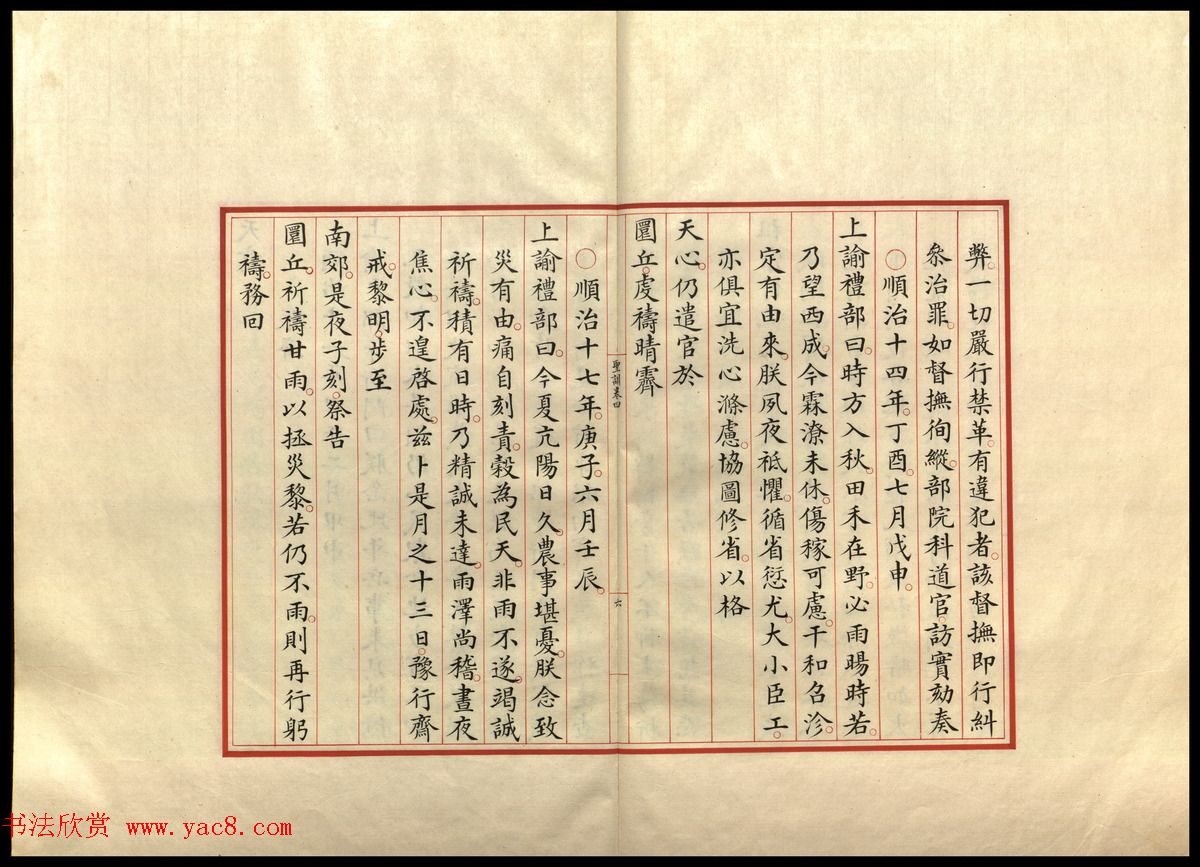 弊一切嚴行禁革有違犯者該督撫即行糾
叅治罪如督撫徇縱部院科道官訪實劾奏
○順治十四年丁酉七月戊申
上諭禮部曰時方入秋田禾在野必雨暘時若
乃望西成今霖潦未休傷稼可慮干和召沴
定有由來朕夙夜祗懼循省愆尤大小臣工
亦俱宜洗心滌慮協圖修省以格
天心仍遣官於
圜丘虔禱晴霽
聖訓卷四
六
○順治十七年庚子六月壬辰
上諭禮部曰今夏亢陽日久農事堪憂朕念致
災有由痛自刻責穀為民天非雨不遂竭誠
祈禱積有日時乃精誠未達雨澤尚稽晝夜
焦心不遑啓處兹卜是月之十三日豫行齋
戒黎明步至
南郊是夜子刻祭告
圜丘祈禱甘雨以拯災黎若仍不雨則再行躬
禱務回
书法欣赏 www.yac8.com